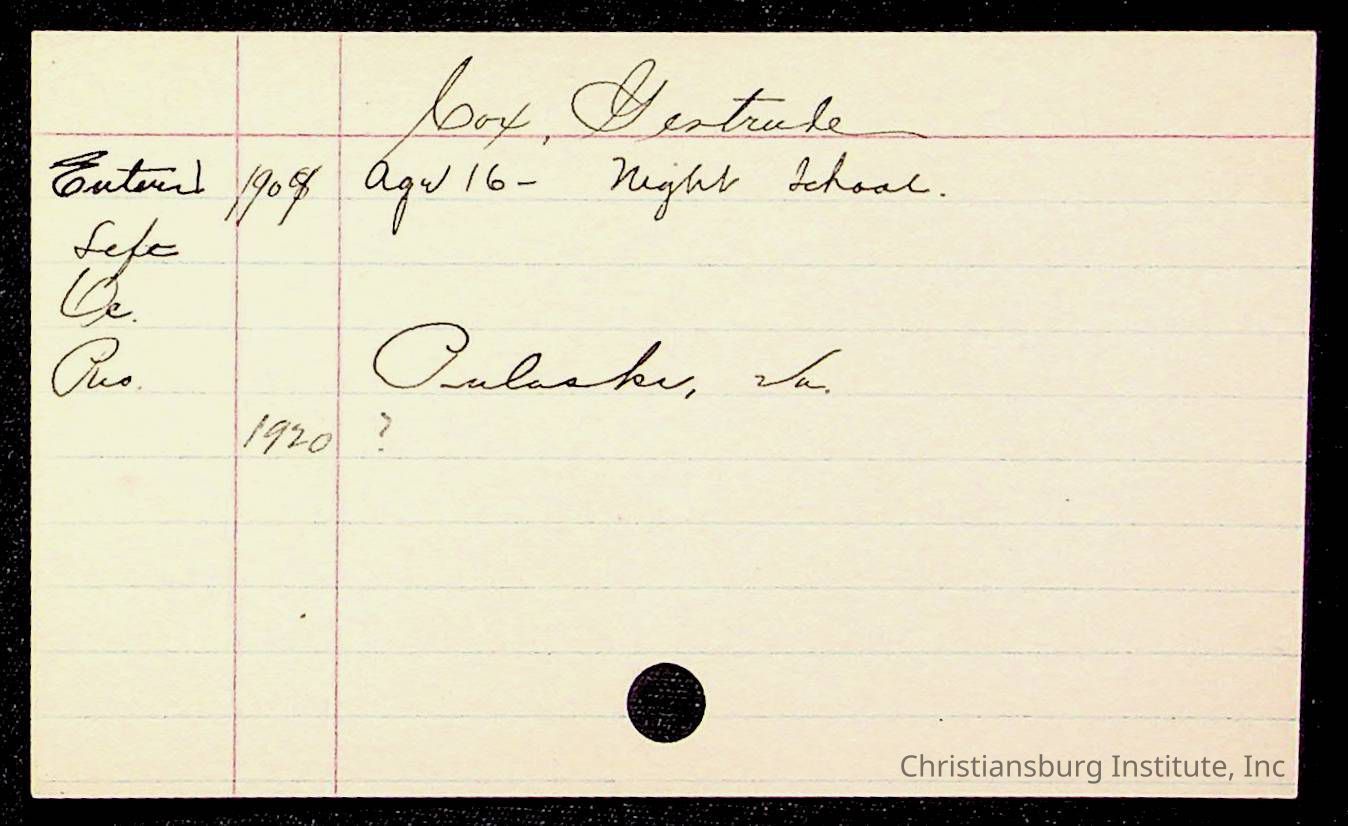 Cox, Gertrude
Entered Age 16- Night School.
Left
Oc.
Res. Pulaski, Va.
1920 ?
Christiansburg Institute, Inc